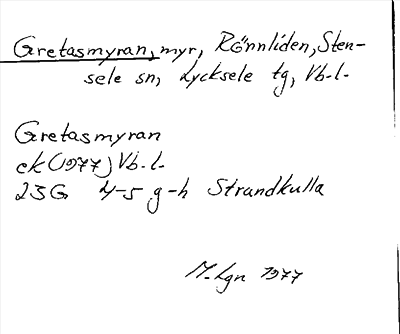 Gretasmyran, myr, Rönnliden, Sten-
sele sn, Lycksele tg, Vb.l.
Gretasmyran
ek (1977) Vb.l.
23G 4-5 g-h Strandkulla
M.Lgn 1977